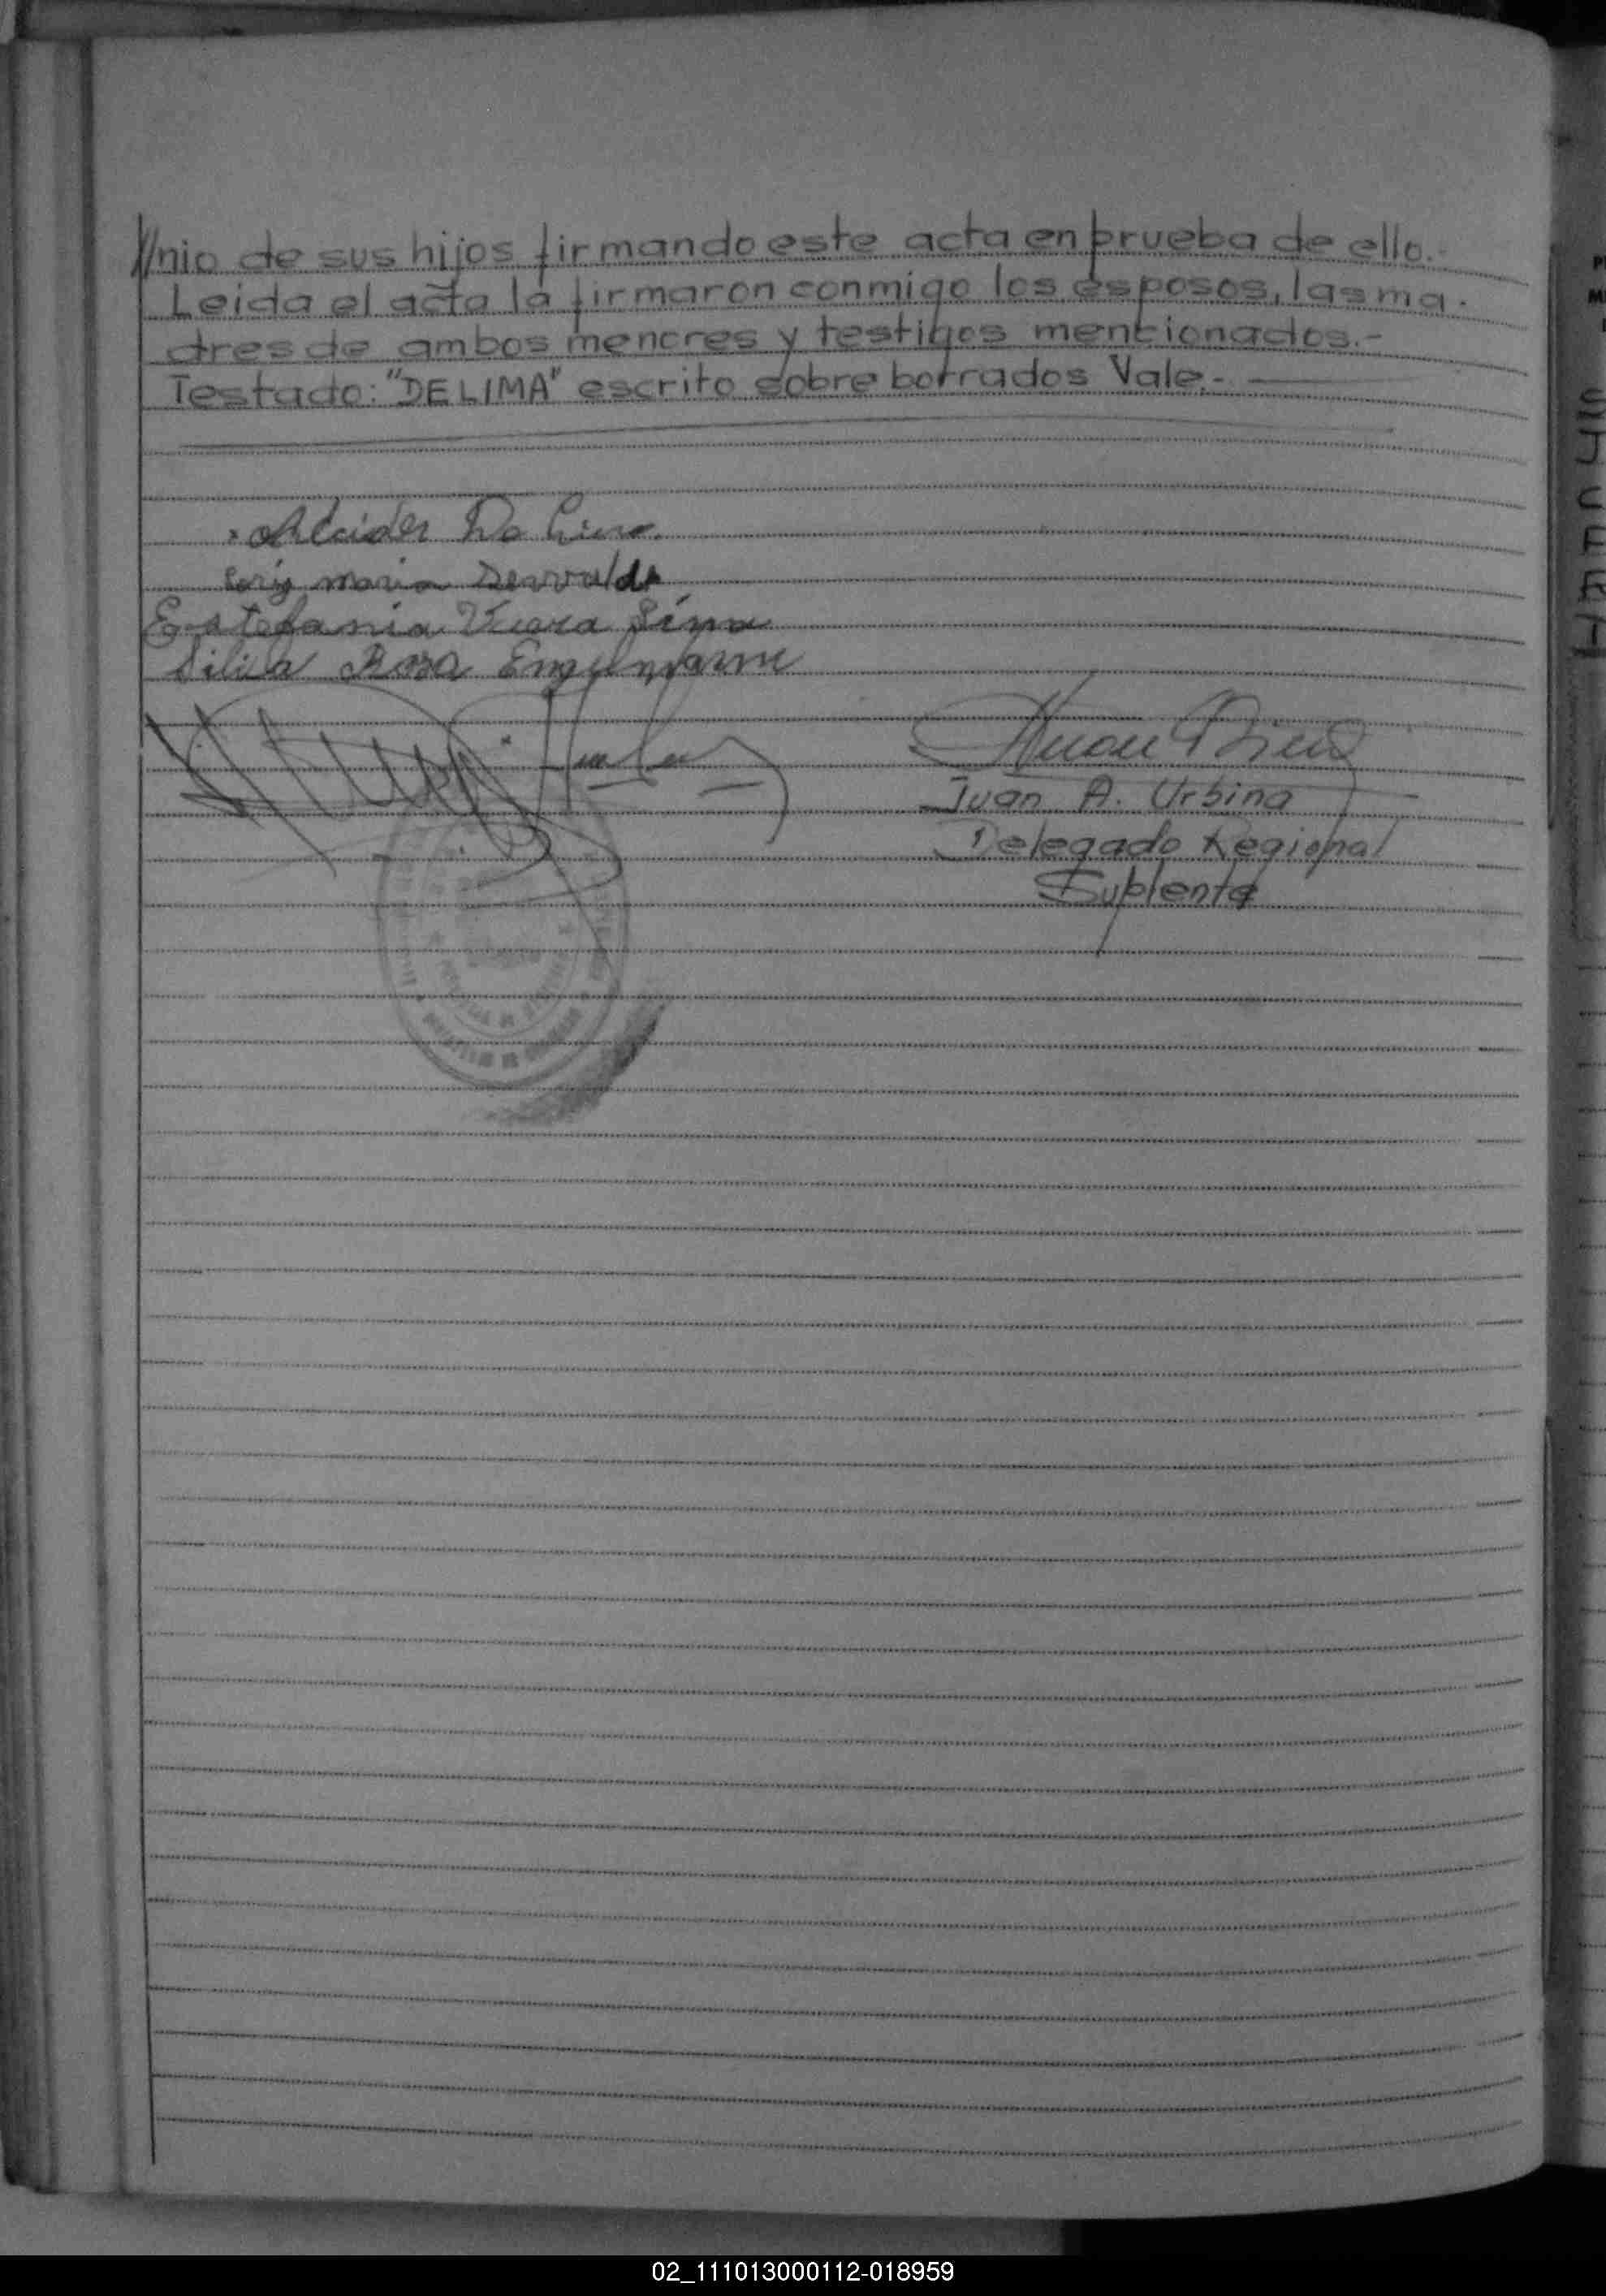 //nio de sus hijos firmando este acta en prueba de ello.-
Leida el acta la firmaron conmigo los esposos, las ma-
dres de ambos menores y testigos mencionados.-
Testado: "DE LIMA" escrito sobre borrados Vale.-
Alcides De Lima
maria
Estefania Viera
Silvia Rosa Engelmann
Juan A. Urbina
Delegado Regional
Suplente
02_111013000112-018959